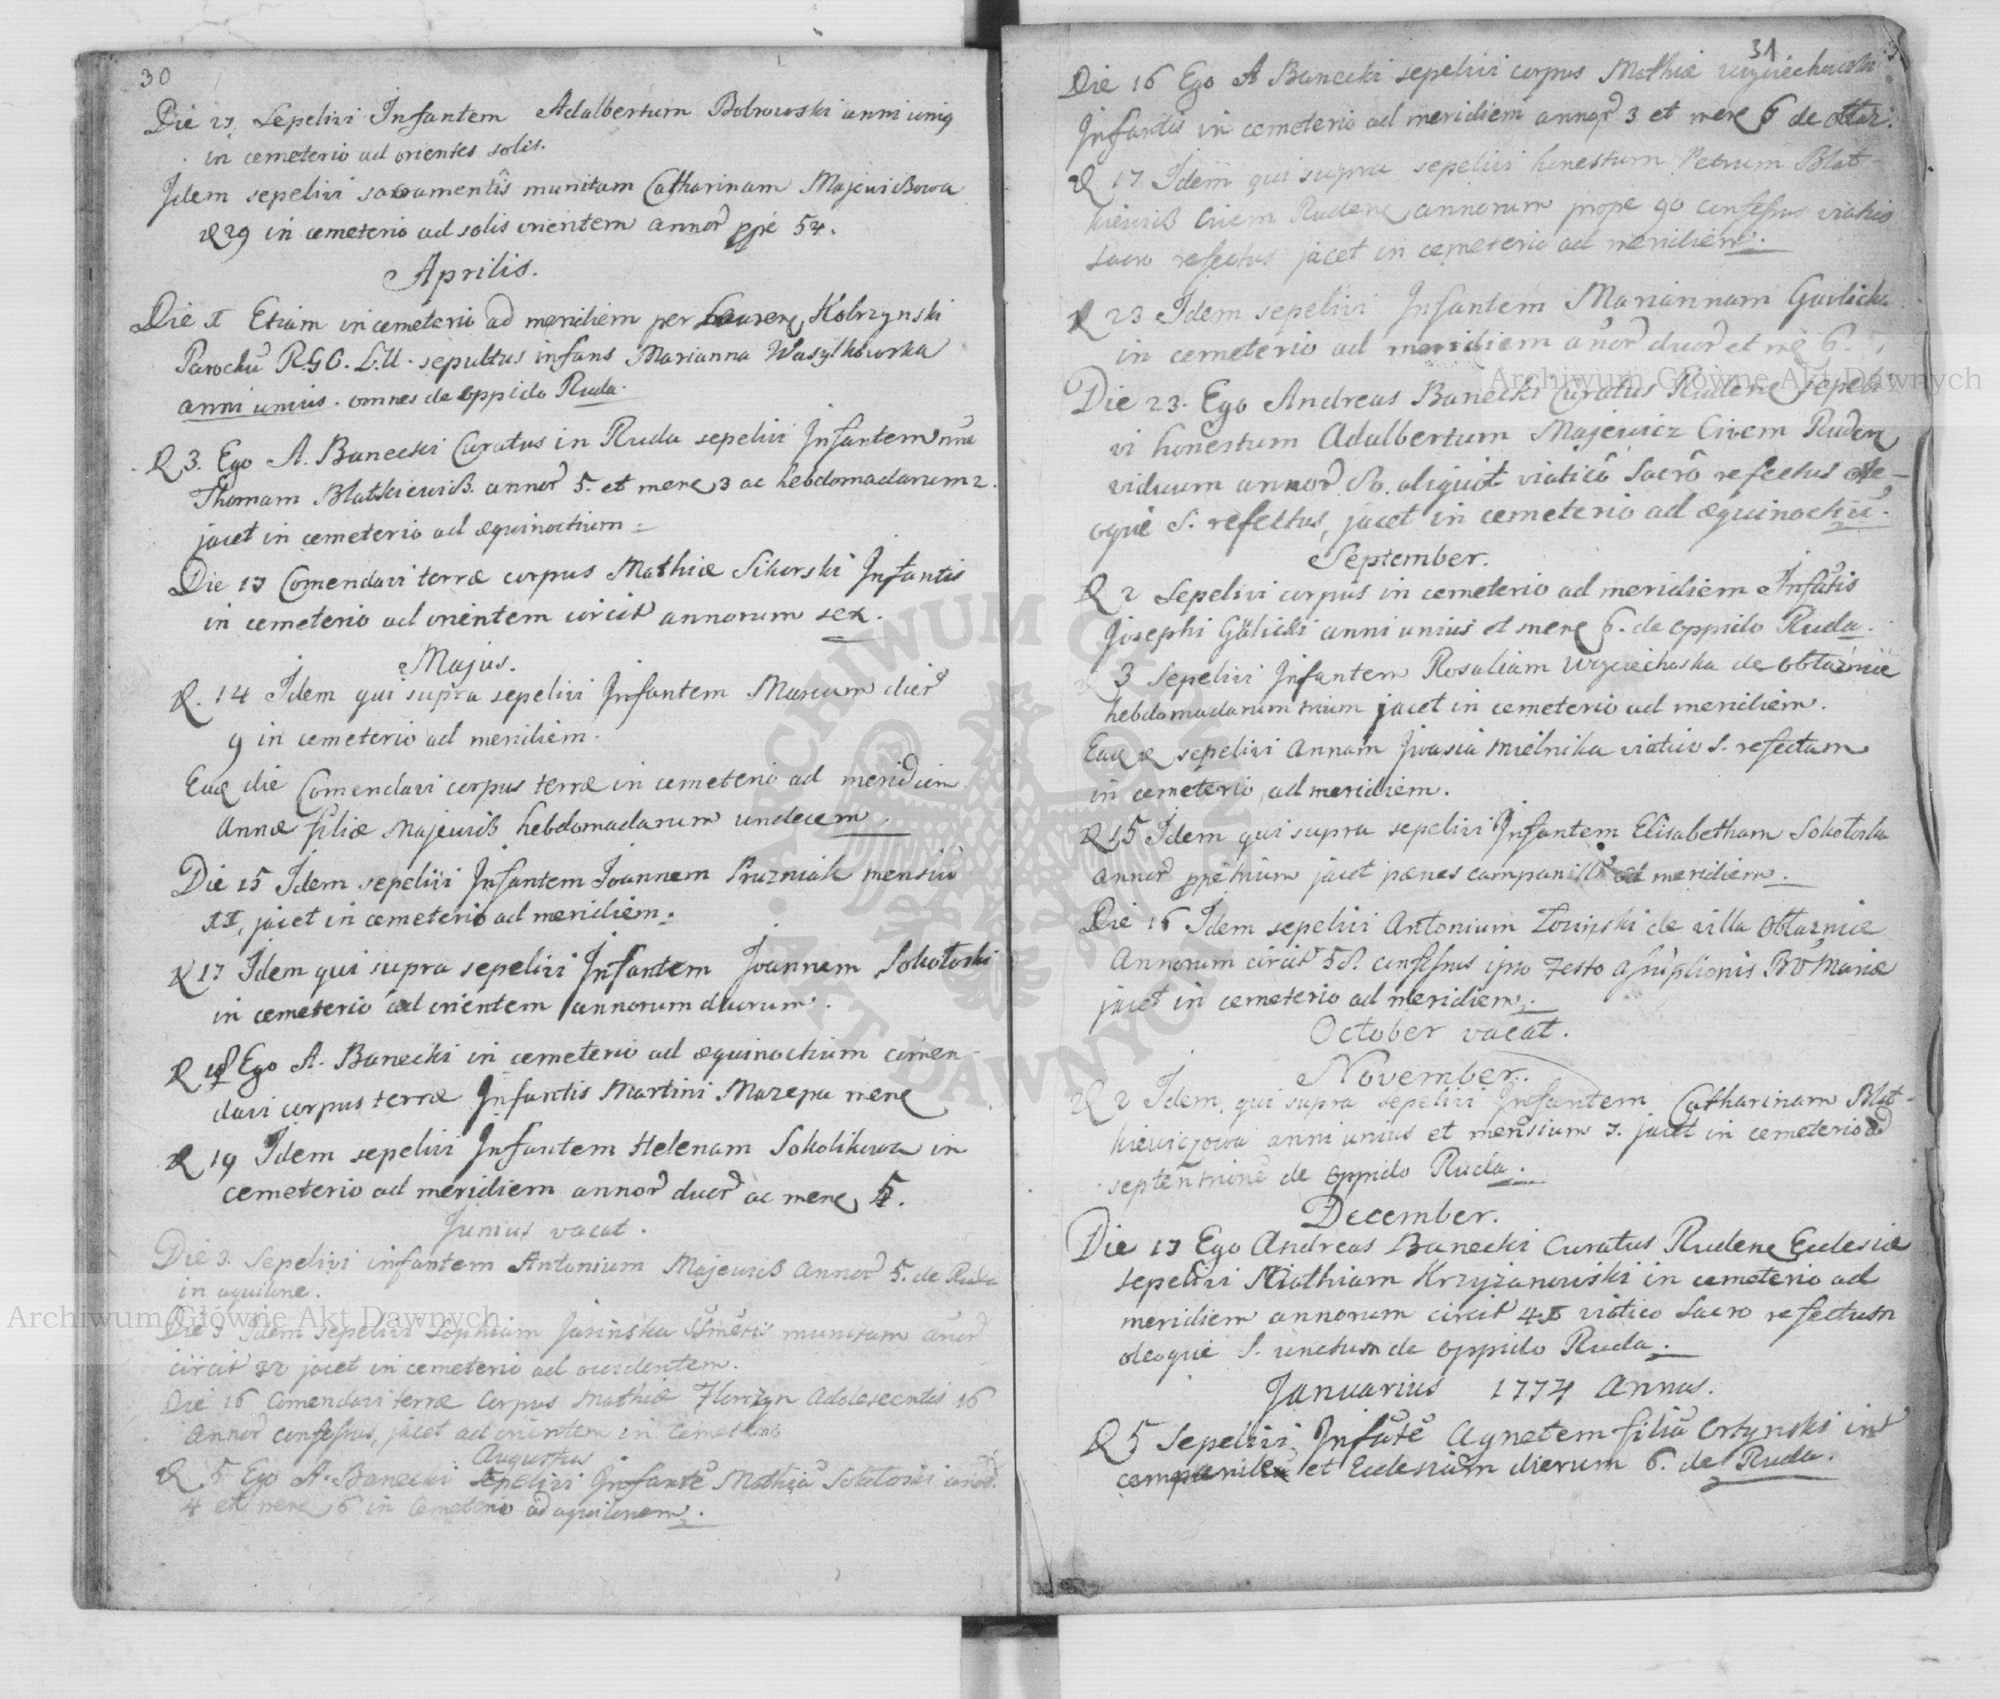 30
Die 27 Sepelivi Infantem Adalbertum Bobrowski anni uniq
in cemeterio ad orientes solis.
Idem sepelivi sacramentis munitam Catharinam Majewißowa
D 29 in cemeterio ad solis orientem annor ppe 54.
Aprilis.
Die II Etiam in cemeterio ad meridiem per Laurenq Kobrzynski
Parochu R.G.C. L.U. sepultus infans Marianna Wasylkowska
anni unius. omnes de oppido Ruda.
D 3. Ego A. Banecki Curatus in Ruda sepelivi Infantem
Thomam Blatkiewiß annor 5. et menq 3 ac hebdomadarum 2.
jacet in cemeterio ad æquinoctium
Die 17 Comendavi terræ corpus Mathiæ Sikorski Infantis
in cemeterio ad orientem circit annorum sex.
Majus.
D. 14 Idem qui supra sepelivi Infantem dier
9 in cemeterio ad meridiem.
Eaq die Comendavi corpus terræ in cemeterio ad meridiem
Annæ filiæ Majewiß hebdomadarum undecem
Die 15 Idem sepelivi Infantem Joannem Pruzniak mensiu
II, jacet in cemeterio ad meridiem.
D 17 Idem qui supra sepelivi Infantem Joannem Sokołoski
in cemeterio ad orientem annorum duorum.
D 18 Ego A. Banecki in cemeterio ad æquinoctium comen-
davi corpus terræ Infantis Martini Mazepa menq
D 19 Idem sepelivi Infantem Helenam Sokolikowa in
cemeterio ad meridiem annor duor ac menq 5.
Junius vacat.
Die 3. Sepelivi infantem Antonium Majewiß annor 5. de Ruda
in aquilone.
Die Idem sepelivi Sophiam Jasinska munitam anor
circit 32 jacet in cemeterio ad occidentem.
Die 16 Comendavi terræ Corpus Mathiæ Adolescentis 16
annor confessus, jacet ad orientem in Cemeterio
Augustus
D 5 Ego A. Banecki sepelivi Infante Mathia Sokołoski anor.
4 et menq 6 in Cemeterio ad aquilonem.
31
Die 16 Ego A Banecki sepelivi corpus Mathiæ Woyciechowski
Infantis in cemeterio ad meridiem annor 3 et menq 6 de
D 17 Idem qui supra sepelivi honestum Petrum Blat-
kiewiß Civem Rudenq annorum prope 90 confessus viatico
sacro refectus jacet in cemeterio ad meridiem.
D 23 Idem sepelivi Infantem Mariannam Gavlicka
in cemeterio ad meridiem anor duor et me 6.
Die 23. Ego Andreas Banecki Curatus Rudenq sepeli
vi honestum Adalbertum Majewicz Civem Rudenq
viduum annor 80. aliquot viatico Sacro refectus ole-
oque S. refectus, jacet in cemeterio ad æquinoctiu.
September.
D 2 Sepelivi corpus in cemeterio ad meridiem Infatis
Josephi Galicki anni unius et menq 6. de oppido Ruda.
D 3 Sepelivi Infantem Rosaliam Woyciechoska de obłaznie
hebdomadarum trium jacet in cemeterio ad meridiem.
Eaq D sepelivi Annam Jwasia mielnika viatico S. refectam
in cemeterio ad meridiem.
D 15 Idem qui supra sepelivi Infantem Elisabetham Sokołoska
annor ppe trium jacet pænes campanill ad meridiem.
Die 16 Idem sepelivi Antonium de villa Obłaznie
Annorum circit 58. confessus ipso Festo Assuptionis BV Mariæ
jacet in cemeterio ad meridiem.
October vacat.
November.
D 2 Idem qui supra sepelivi Infantem Catharinam Blat-
kiewiczowa anni unius et mensium 7. jacet in cemeterio ad
septentrione de oppido Ruda.
December.
Die 17 Ego Andreas Banecki Curatus Rudenq Eclesiæ
sepelivi Mathiam Krzyżanowski in cemeterio ad
meridiem annorum circit viatico sacro refectum
oleoque S. unctum de oppido Ruda.
Januarius 1774 Annus.
D 5 Sepelivi Infate Agnetem filia Ortynski int
campanile et Eclesiam dierum 6. de Ruda.
Archiwum Główne Akt Dawnych
Archiwum Główne Akt Dawnych
ARCHIWUM GŁÓWNE AKT DAWNYCH